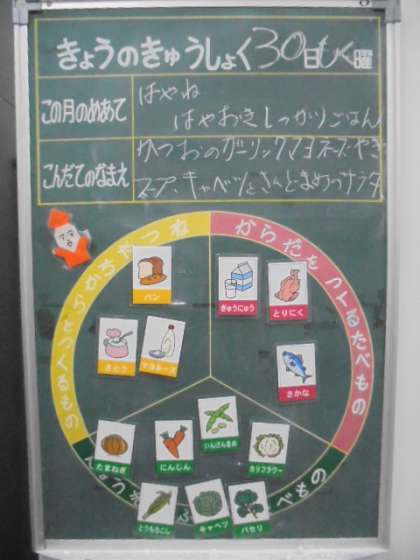 きょうのきゅうしょく 30日もく曜
この月のめあて
はやね
はやおきしっかりごはん
こんだてのなまえ
かつおのガーリックマヨネーズやき
スープ、キャベツときんときまめのサラダ
ねつやちからになるもの
からだをつくるたべもの
パン
ぎゅうにゅう
とりにく
さとう
マヨネーズ
さかな
たまねぎ
にんじん
いんげんまめ
カリフラワー
とうもろこし
キャベツ
パセリ